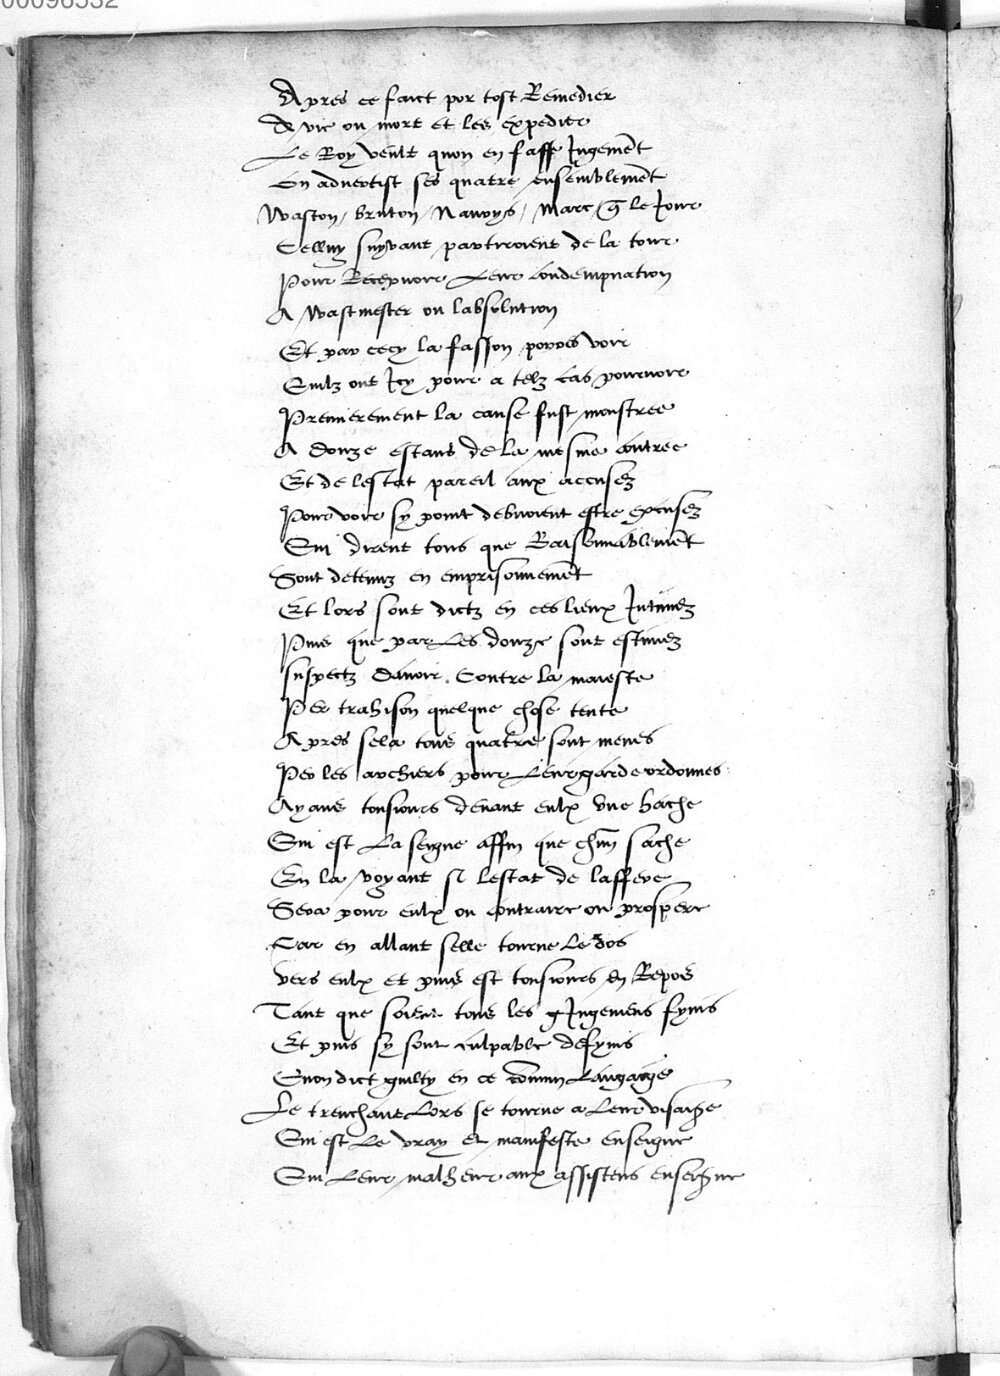 00096532
Apres ce faict por tost Remedier
A vie ou mort et les expedier
Le Roy veult quon en fasse Jugemẽt
On advertist ses quatre ensemblemẽt
Waston / bruton / Nauroys / Marc / q̃ le Jour
Celluy suyvant partiroient de la tour
Pour Recepvoir Leur condempnation
A Wastmester ou labsolution
Et par cecy la fasson porres voir
Quilz ont Icy pour a telz cas pourvoir
Premierement la cause fust monstree
A douze estans de la mesme contree
Et de lestat pareil aux accusez
Pour voir sy point debvoient estre excusez
Qui dirent tous que Raisonnablemẽt
Sont detenuz en emprisonnemẽt
Et lors sont dictz en ces lieux Intimez
Puis que par Les douze sont estimez
suspectz davoir Contre la maieste
Per trahison quelque chose tente
Apres sela tous quatre sont menes
Per les archiers pour Leur garde ordonnes
Ayans tousiours devant eulx vne hache
Qui est La seigne affin que chũn sache
En la voyant sy lestat de laffere
Sera pour eulx ou contraire ou prospere
Car en allant selle tourne Le dos
vers eulx et puis est tousiours En Repos
Tant que soient tous les Jugemens fynis
Et puis sy sont culpable defynis
Quon dict guilty en ce commun Langaige
Le trenchant Lors se tourne a Leur visaige
Qui est Le vray et manifeste enseigne
Qui Leur malheur aux assistens enseigne